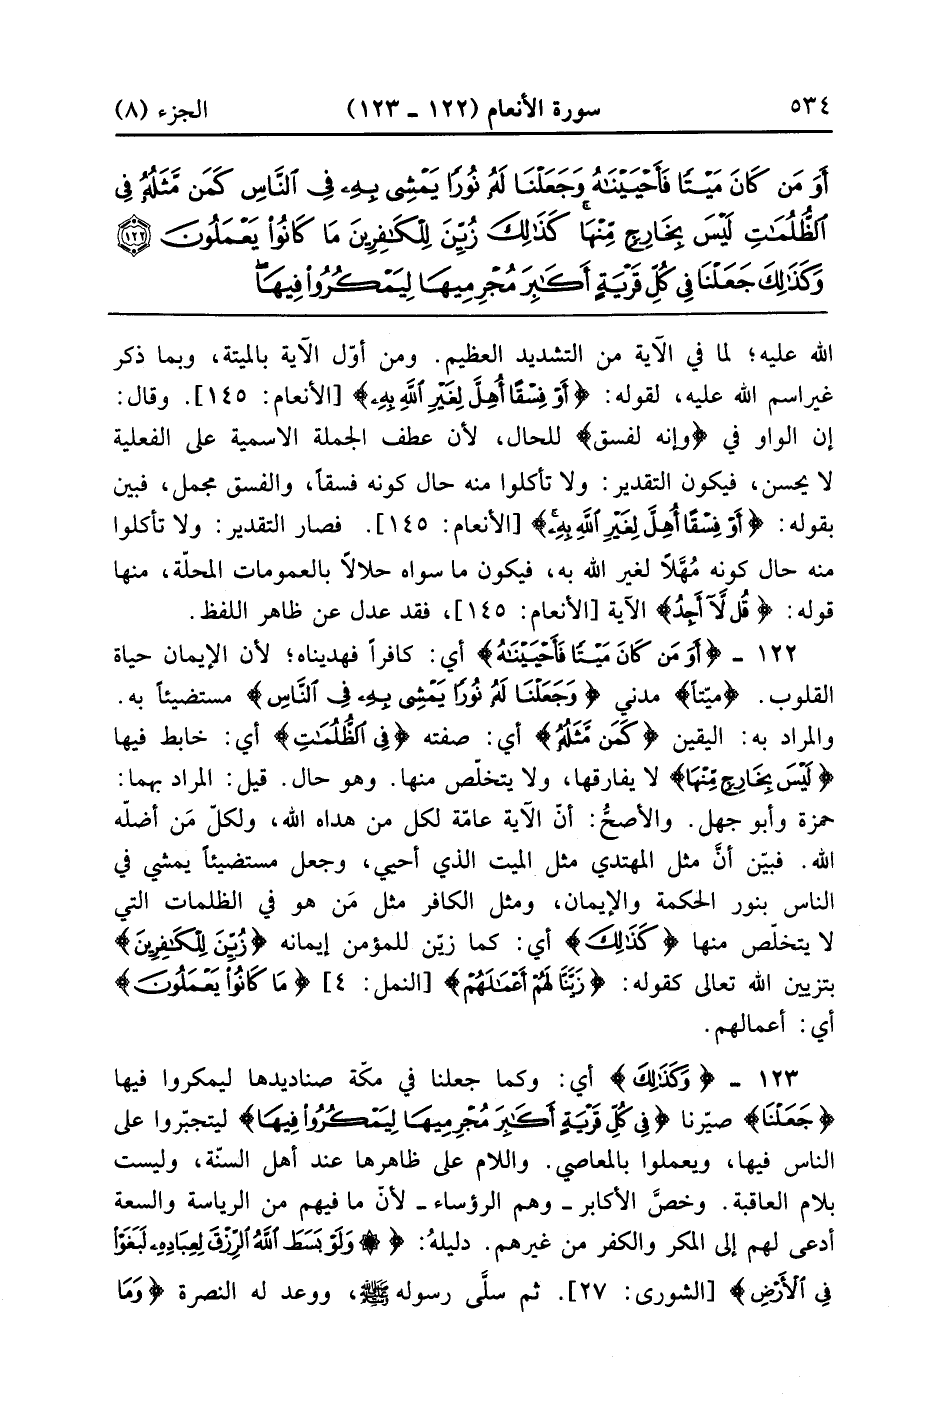 ٥٣٤ سورة الأنعام (١٢٢ - ١٢٣) الجزء (٨)
أَوَ مَن كَانَ مَيْتًا فَأَحْيَيْنَٰهُ وَجَعَلْنَا لَهُۥ نُورًا يَمْشِى بِهِۦ فِى ٱلنَّاسِ كَمَن مَّثَلُهُۥ فِى
ٱلظُّلُمَٰتِ لَيْسَ بِخَارِجٍ مِّنْهَا ۚ كَذَٰلِكَ زُيِّنَ لِلْكَٰفِرِينَ مَا كَانُوا۟ يَعْمَلُونَ ١٢٢
وَكَذَٰلِكَ جَعَلْنَا فِى كُلِّ قَرْيَةٍ أَكَٰبِرَ مُجْرِمِيهَا لِيَمْكُرُوا۟ فِيهَا ۖ
الله عليه؛ لما في الآية من التشديد العظيم. ومن أوّل الآية بالميتة، وبما ذكر
غيراسم الله عليه، لقوله: ﴿أَوْ فِسْقًا أُهِلَّ لِغَيْرِ ٱللَّهِ بِهِۦ﴾ [الأنعام: ١٤٥]. وقال:
إن الواو في ﴿وإنه لفسق﴾ للحال، لأن عطف الجملة الاسمية على الفعلية
لا يحسن، فيكون التقدير: ولا تأكلوا منه حال كونه فسقاً، والفسق مجمل، فبين
بقوله: ﴿أَوْ فِسْقًا أُهِلَّ لِغَيْرِ ٱللَّهِ بِهِۦ ۚ﴾ [الأنعام: ١٤٥]. فصار التقدير: ولا تأكلوا
منه حال كونه مُهَّلاً لغير الله به، فيكون ما سواه حلالاً بالعمومات المحلّة، منها
قوله: ﴿قُل لَّآ أَجِدُ﴾ الآية [الأنعام: ١٤٥]، فقد عدل عن ظاهر اللفظ.
١٢٢ - ﴿أَوَ مَن كَانَ مَيْتًا فَأَحْيَيْنَٰهُ﴾ أي: كافراً فهديناه؛ لأن الإيمان حياة
القلوب. ﴿ميّتاً﴾ مدني ﴿وَجَعَلْنَا لَهُۥ نُورًا يَمْشِى بِهِۦ فِى ٱلنَّاسِ﴾ مستضيئاً به.
والمراد به: اليقين ﴿كَمَن مَّثَلُهُۥ﴾ أي: صفته ﴿فِى ٱلظُّلُمَٰتِ﴾ أي: خابط فيها
﴿لَيْسَ بِخَارِجٍ مِّنْهَا﴾ لا يفارقها، ولا يتخلّص منها. وهو حال. قيل: المراد بهما:
حمزة وأبو جهل. والأصحُّ: أنّ الآية عامّة لكل من هداه الله، ولكلّ مَن أضله
الله. فبيّن أنَّ مثل المهتدي مثل الميت الذي أحيي، وجعل مستضيئاً يمشي في
الناس بنور الحكمة والإيمان، ومثل الكافر مثل مَن هو في الظلمات التي
لا يتخلّص منها ﴿كَذَٰلِكَ﴾ أي: كما زيّن للمؤمن إيمانه ﴿زُيِّنَ لِلْكَٰفِرِينَ﴾
بتزيين الله تعالى كقوله: ﴿زَيَّنَّا لَهُمْ أَعْمَٰلَهُمْ﴾ [النمل: ٤] ﴿مَا كَانُوا۟ يَعْمَلُونَ﴾
أي: أعمالهم.
١٢٣ - ﴿وَكَذَٰلِكَ﴾ أي: وكما جعلنا في مكّة صناديدها ليمكروا فيها
﴿جَعَلْنَا﴾ صيّرنا ﴿فِى كُلِّ قَرْيَةٍ أَكَٰبِرَ مُجْرِمِيهَا لِيَمْكُرُوا۟ فِيهَا﴾ ليتجبّروا على
الناس فيها، ويعملوا بالمعاصي. واللام على ظاهرها عند أهل السنّة، وليست
بلام العاقبة. وخصَّ الأكابر - وهم الرؤساء - لأنّ ما فيهم من الرياسة والسعة
أدعى لهم إلى المكر والكفر من غيرهم. دليلهُ: ﴿۞ وَلَوْ بَسَطَ ٱللَّهُ ٱلرِّزْقَ لِعِبَادِهِۦ لَبَغَوْا۟
فِى ٱلْأَرْضِ﴾ [الشورى: ٢٧]. ثم سلَّى رسوله ﷺ، ووعد له النصرة ﴿وَمَا